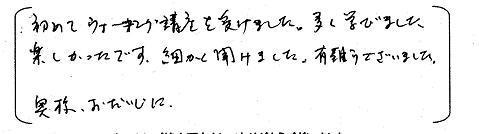 初めてウォーキング講座を受けました。多く学びました
楽しかったです。細かく聞けました。有難うございました。
奥様、おだいじに。